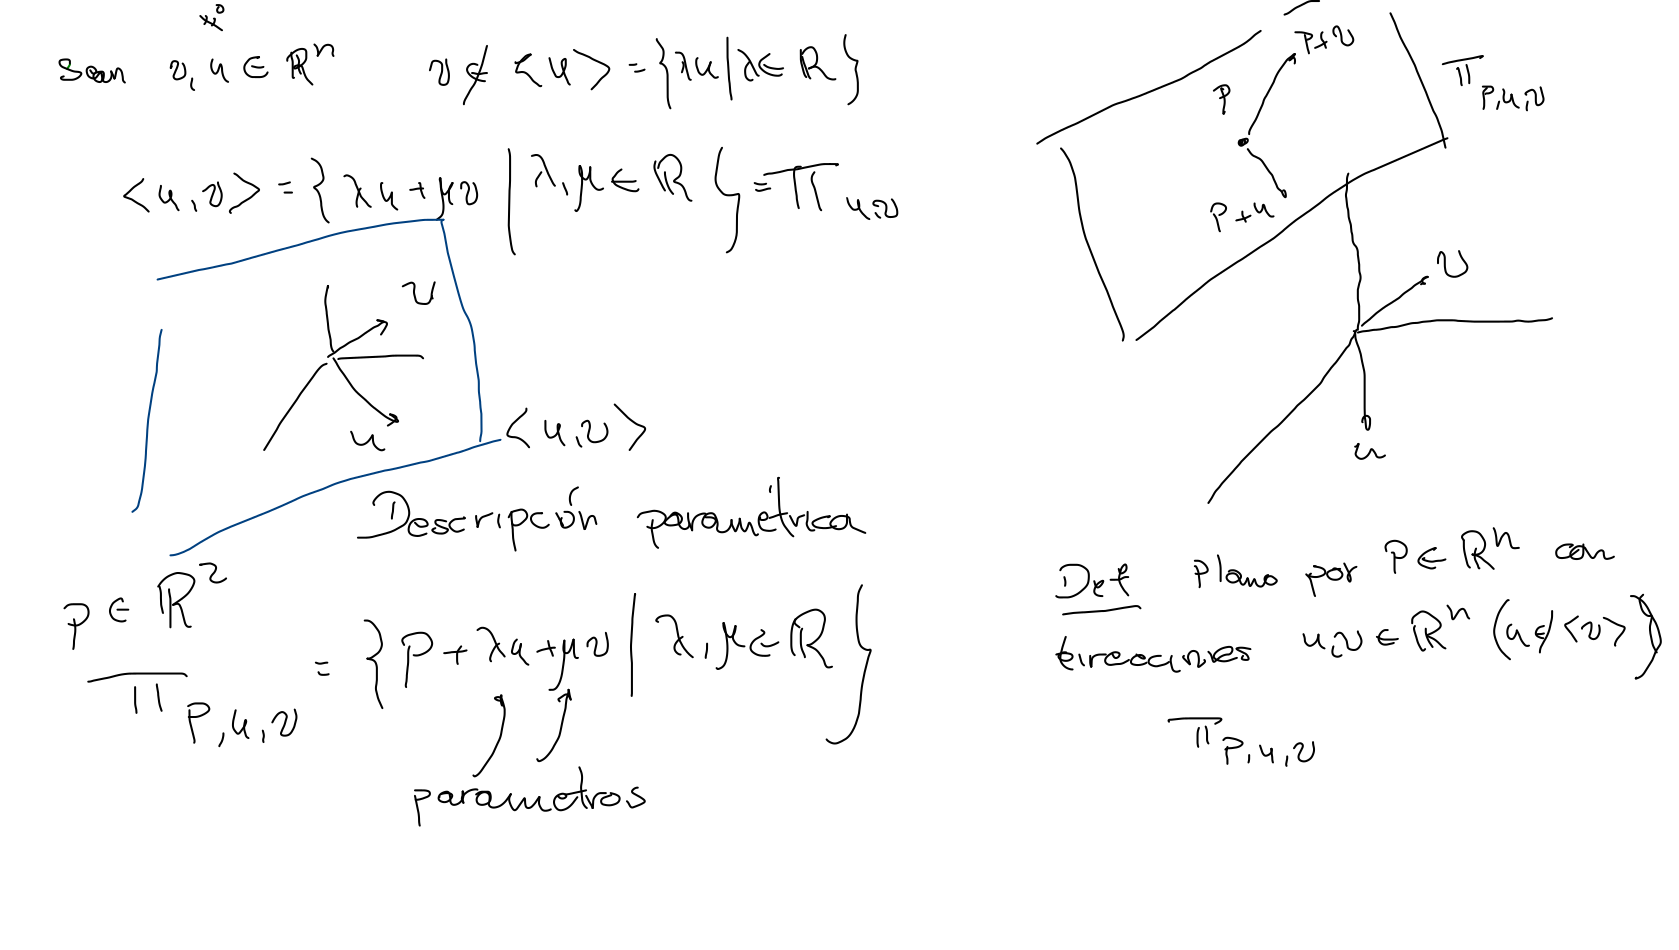 ≠0
Sean v, u ∈ ℝⁿ v ∉ <u> = {λu | λ ∈ ℝ}
<u,v> = {λu + μv | λ, μ ∈ ℝ} = Π u,v
v
u
<u,v>
Descripción paramétrica
p ∈ ℝ²
Π P,u,v = {P + λu + μv | λ, μ ∈ ℝ}
parametros
P+v
P
Π P,u,v
P+u
v
u
Def Plano por P ∈ ℝⁿ con
direcciones u,v ∈ ℝⁿ (u ∉ <v>)
Π P,u,v